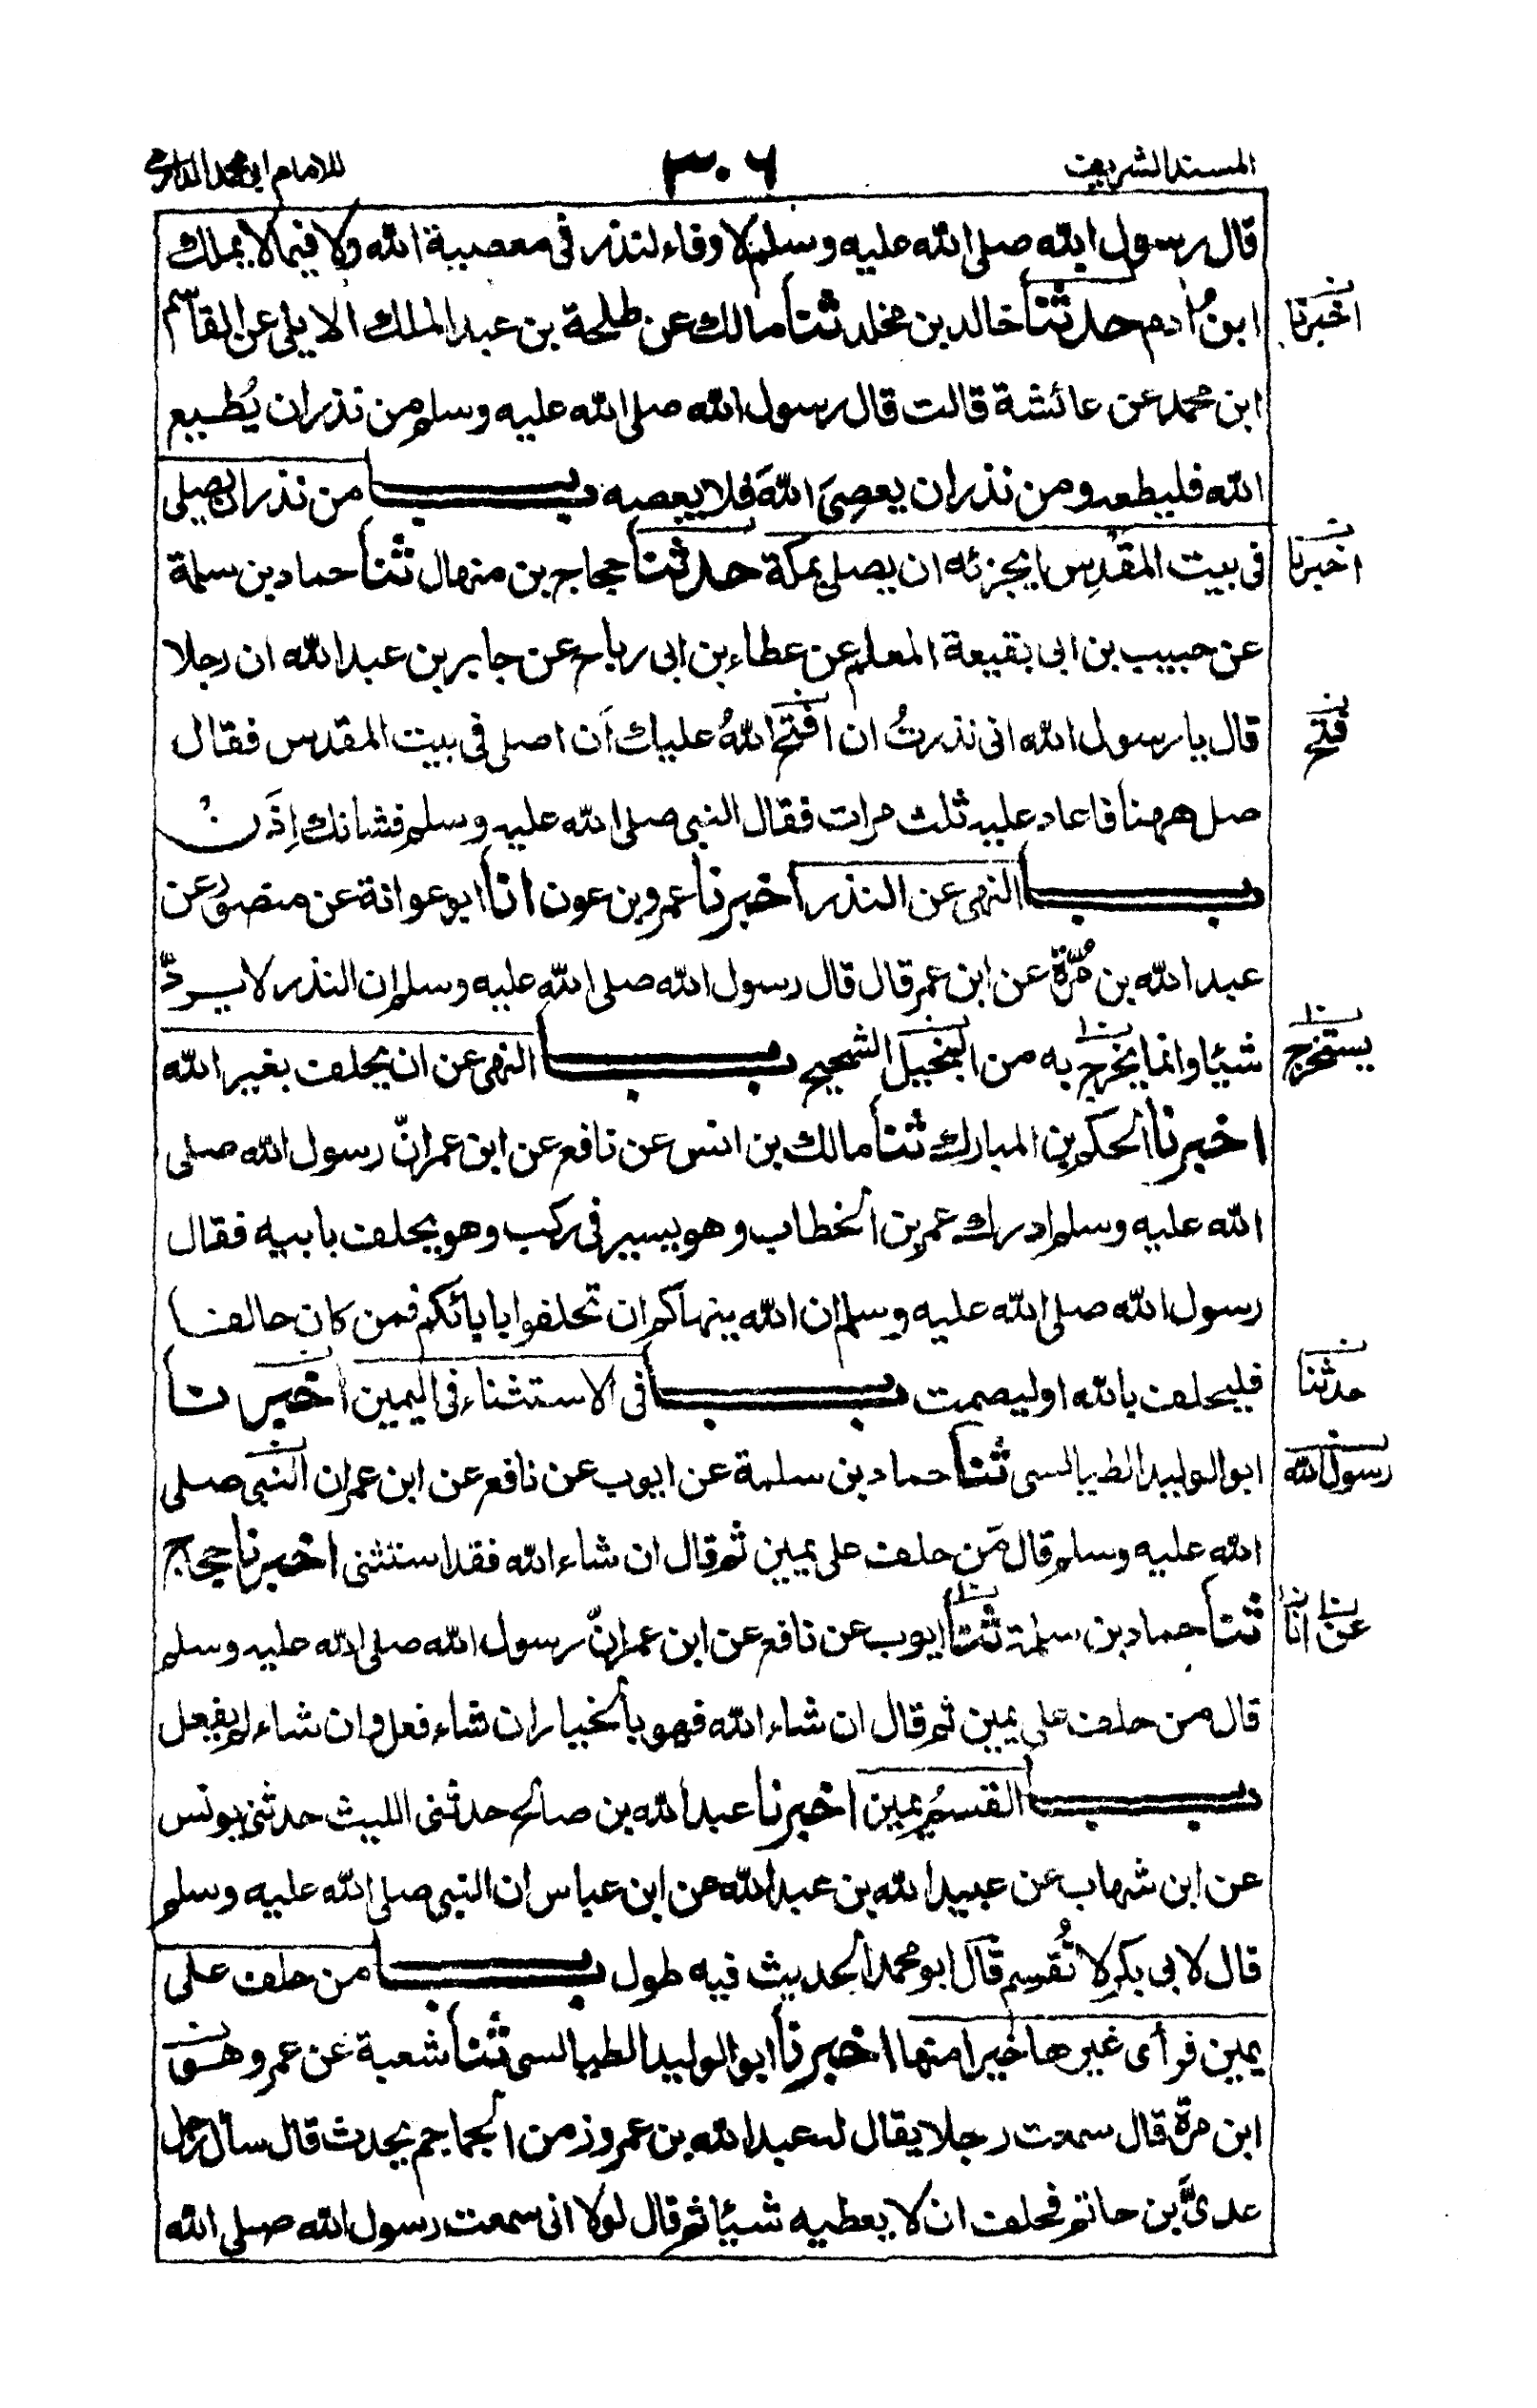 المسند الشريف ٣٠٦ للامام ابى محمد الدارمى
قال رسول الله صلى الله عليه وسلم لا وفاء لنذر فى معصية الله ولا فيما لا يملك
ابنُ اٰدم حدثنا خالد بن مخلد ثنا مالك عن طلحة بن عبد الملك الايلى عن القاسم
اخبرنا
ابن محمد عن عائشة قالت قال رسول الله صلى الله عليه وسلم من نذر ان يُطيع
الله فليطعه ومن نذر ان يعصِىَ اللهَ فلا يعصه باب من نذر ان يصلى
فى بيت المقْدِس ايجزئه ان يصلى بمكة حدثنا حجاج بن منهال ثنا حماد بن سلمة
اخبرنا
عن حبيب بن ابى بقيعة المعلم عن عطاء بن ابى رباح عن جابر بن عبد الله ان رجلا
قال يا رسول الله انى نذرتُ ان افتح اللهُ عليك اَن اصلى فى بيت المقدس فقال
فتح
صل ههنا فاعاد عليه ثلث مرات فقال النبى صلى الله عليه وسلم فشانك اِذَن
باب النهى عن النذر اخبرنا عمرو بن عون انا ابو عوانة عن منصور عن
عبد الله بن مُرّة عن ابن عمر قال قال رسول الله صلى الله عليه وسلم ان النذر لا يردّ
شيئا وانما يخرج به من البخيل الشحيح باب النهى عن ان يحلف بغير الله
يستخرج
اخبرنا الحكم بن المبارك ثنا مالك بن انس عن نافع عن ابن عمر انّ رسول الله صلى
الله عليه وسلم ادرك عمر بن الخطاب وهو يسير فى ركب وهو يحلف بابيه فقال
رسول الله صلى الله عليه وسلم ان الله ينهاكم ان تحلفوا بابائكم فمن كان حالفا
فليحلف بالله او ليصمت باب فى الاستثناء فى اليمين اخبرنا
حدثنا
ابو الوليد الطيالسى ثنا حماد بن سلمة عن ايوب عن نافع عن ابن عمر ان النبى صلى
رسول الله
الله عليه وسلم قال مَن حلف على يمين ثم قال ان شاء الله فقد استثنى اخبرنا حجاج
ثنا حماد بن سلمة ثنا ايوب عن نافع عن ابن عمر انّ رسول الله صلى الله عليه وسلم
عن انا
قال من حلف على يمين ثم قال ان شاء الله فهو بالخيار ان شاء فعل وان شاء لم يفعل
باب القسمُ يمين اخبرنا عبد الله بن صالح حدثنى الليث حدثنى يونس
عن ابن شهاب عن عبيد الله بن عبد الله عن ابن عباس ان النبى صلى الله عليه وسلم
قال لابى بكر لا تُقسِم قال ابو محمد الحديث فيه طول باب من حلف على
يمين فرأى غيرها خيرا منها اخبرنا ابو الوليد الطيالسى ثنا شعبة عن عمرو هو
ابن مرة قال سمعت رجلا يقال له عبد الله بن عمرو زمن الجماجم يحدث قال سأل رجل
عدىَّ بن حاتم فحلف ان لا يعطيه شيئا ثم قال لولا انى سمعت رسول الله صلى الله